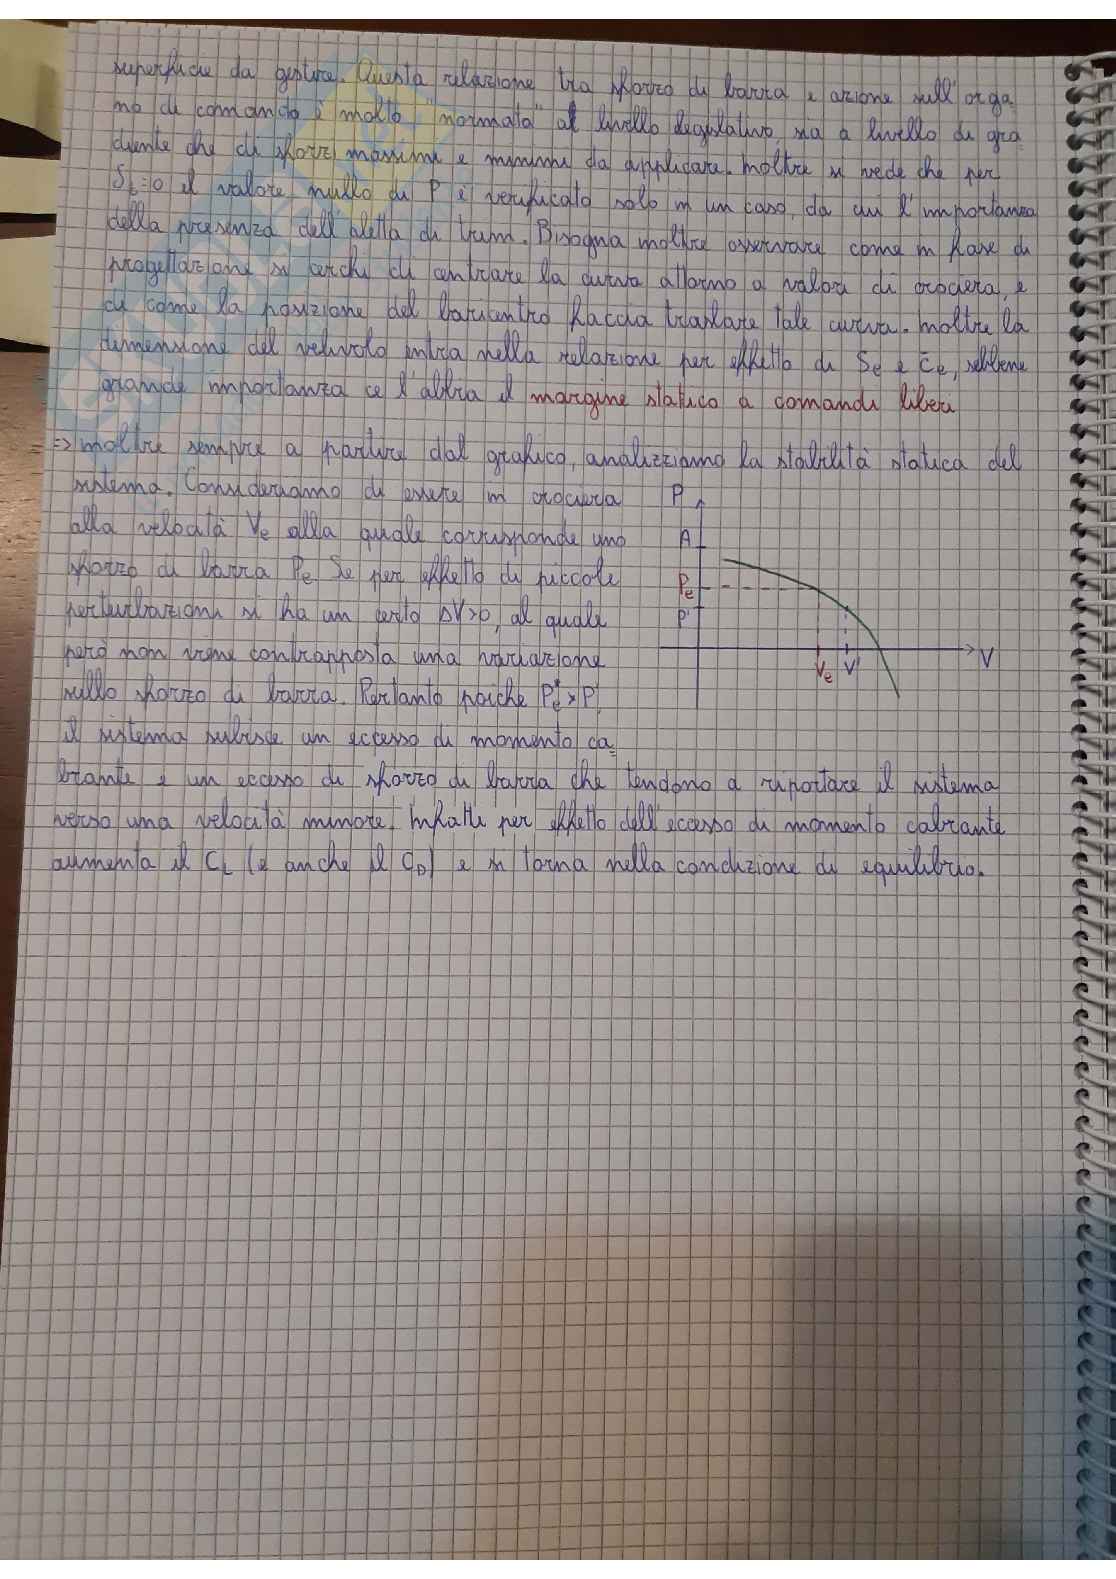 superficie da gestire. Questa relazione tra sforzo di barra e azione sull'orga
no di comando è molto "normata" al livello legislativo, sia a livello di gra
diente che di sforzi massimi e minimi da applicare. Inoltre si vede che per
δt=0 il valore nullo di P è verificato solo in un caso, da cui l'importanza
della presenza dell'aletta di trim. Bisogna inoltre osservare come in fase di
progettazione si cerchi di centrare la curva attorno a valori di crociera, e
di come la posizione del baricentro faccia traslare tale curva. Inoltre la
dimensione del velivolo entra nella relazione per effetto di Se e c̄e, sebbene
grande importanza ce l'abbia il margine statico a comandi liberi
=> Inoltre sempre a partire dal grafico, analizziamo la stabilità statica del
sistema. Consideriamo di essere in crociera
alla velocità Ve alla quale corrisponde uno
sforzo di barra Pe. Se per effetto di piccole
perturbazioni si ha un certo ΔV>0, al quale
però non viene contrapposta una variazione
sullo sforzo di barra. Pertanto poiché Pe > P'
il sistema subisce un eccesso di momento ca=
brante e un eccesso di sforzo di barra che tendono a riportare il sistema
verso una velocità minore. Infatti per effetto dell'eccesso di momento cabrante
aumenta il CL (e anche il CD) e si torna nella condizione di equilibrio.
P
A
Pe
P'
Ve V'
V